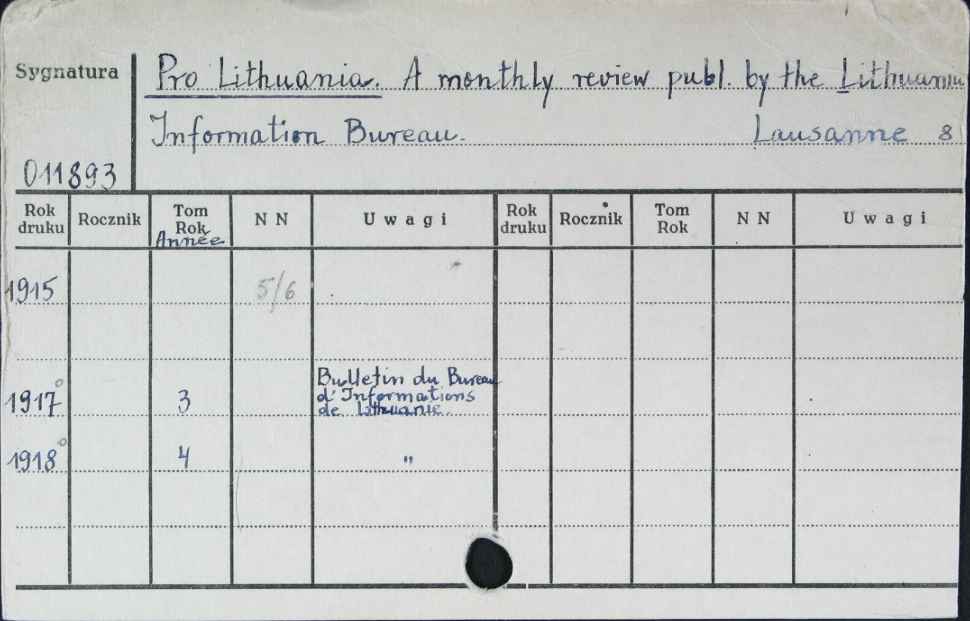 Sygnatura
Pro Lithuania. A monthly review publ. by the Lithuanian
Information Bureau. Lausanne 8
011893
Rok druku Rocznik Tom Rok Année N N Uwagi Rok druku Rocznik Tom Rok N N Uwagi
1915 5/6
Bulletin du Bureau
d'Informations
1917° 3 de Lithuanie.
1918° 4 "